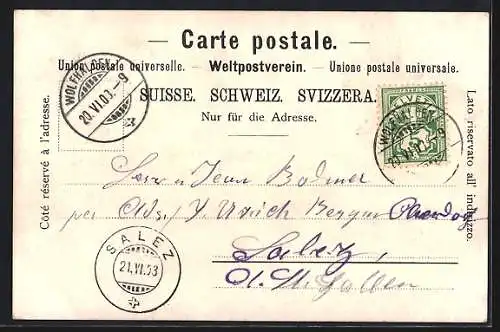 — Carte postale. —
Union postale universelle. — Weltpostverein. — Unione postale universale.
SUISSE. SCHWEIZ. SVIZZERA.
Nur für die Adresse.
Côté réservé à l'adresse.
Lato riservato all' indirizzo.
WOLFHALDEN
20.VI.03.-9
HELVETIA
Herrn Jean Bodmer
per Ulrich Berger
Salez,
Ct. St. Gallen
SALEZ
21.VI.03